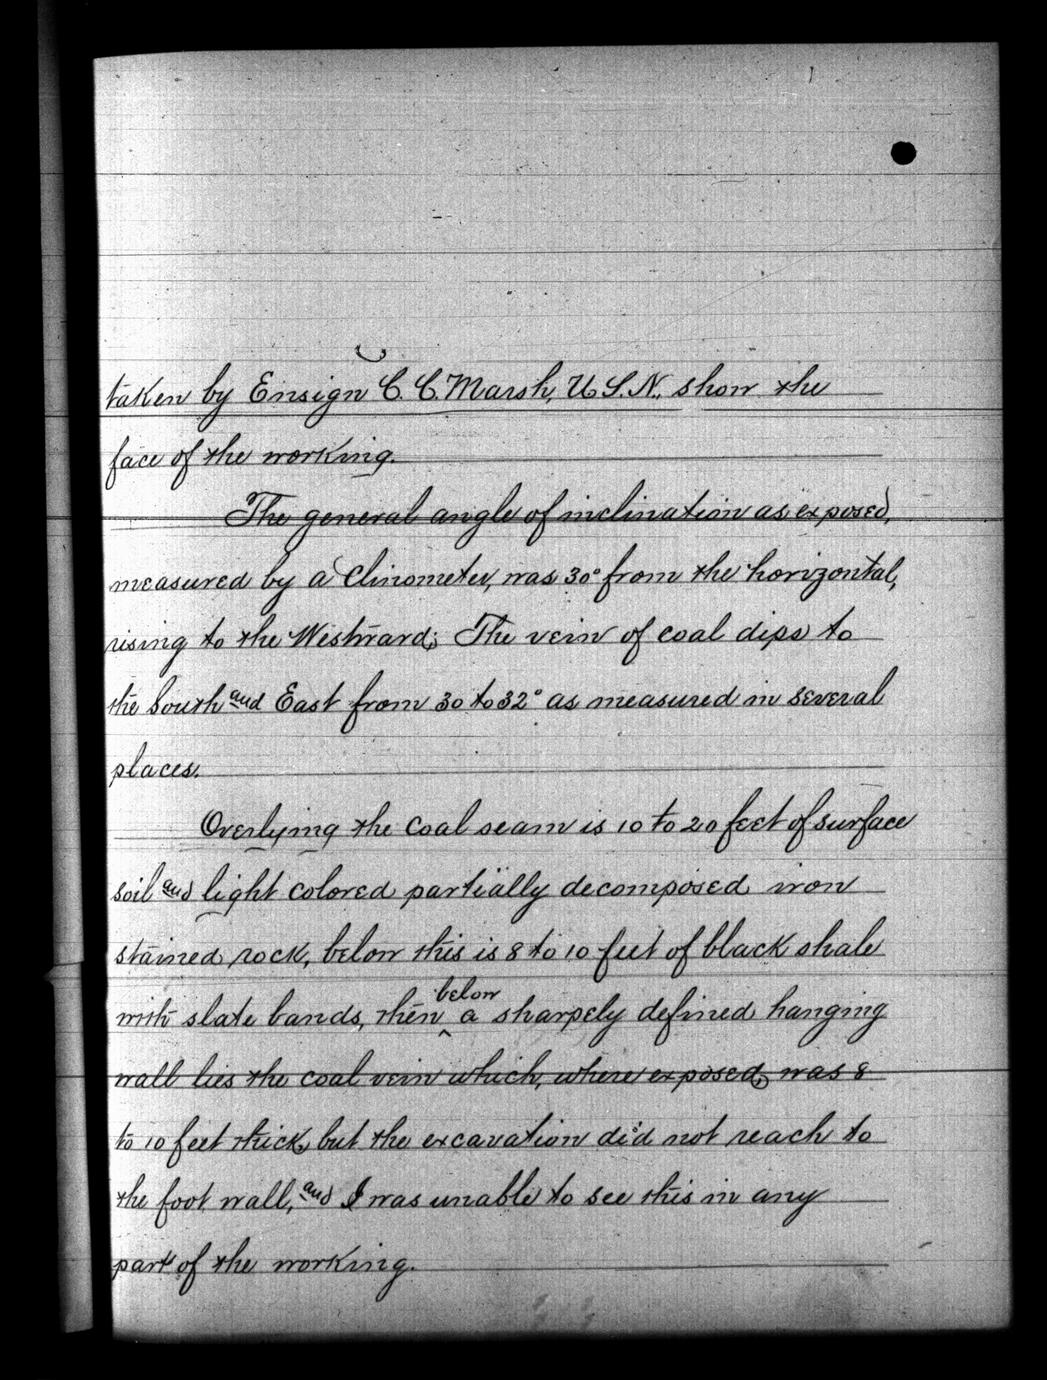 taken by Ensign C. C. Marsh, U.S.N., show the
face of the working.
The general angle of inclination as exposed,
measured by a Clinometer, was 30° from the horizontal,
rising to the Westward; The vein of coal dips to
the South and East from 30 to 32° as measured in several
places.
Overlying the coal seam is 10 to 20 feet of surface
soil and light colored partially decomposed iron
stained rock, below this is 8 to 10 feet of black shale
with slate bands, then below a sharpely defined hanging
wall lies the coal vein which, where exposed, was 8
to 10 feet thick, but the excavation did not reach to
the foot wall, and I was unable to see this in any
part of the working.